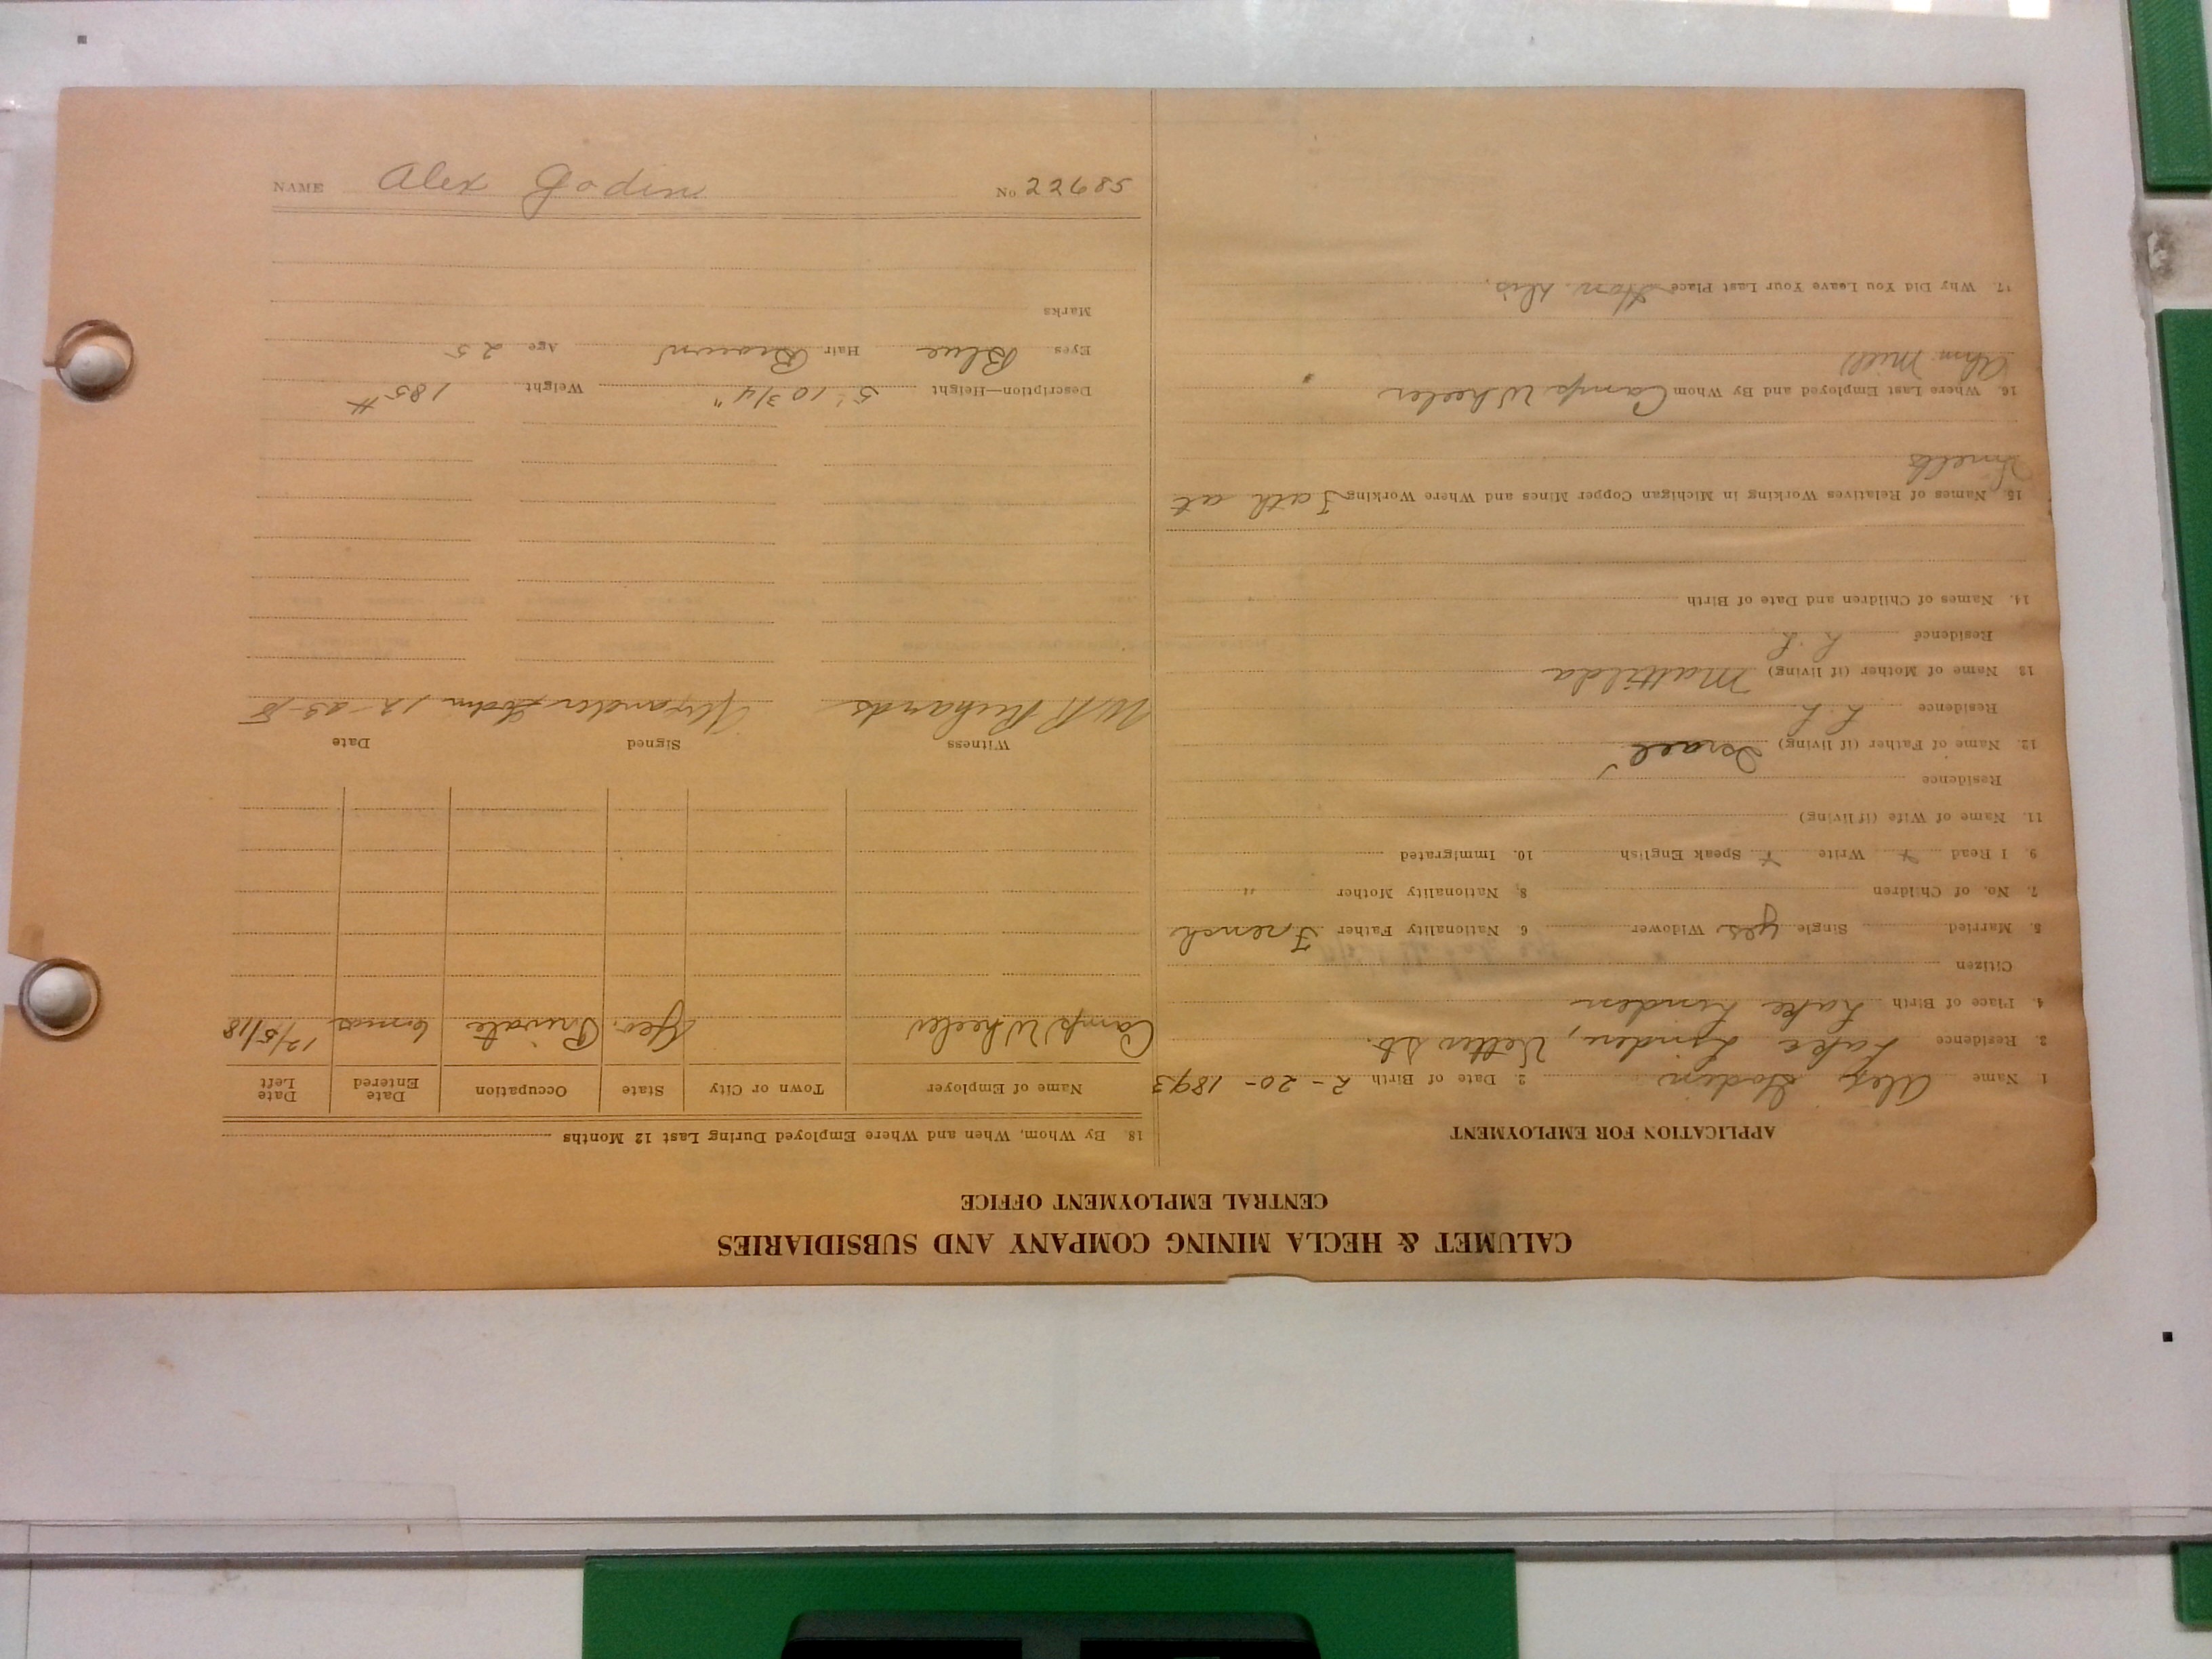 CALUMET & HECLA MINING COMPANY AND SUBSIDIARIES
CENTRAL EMPLOYMENT OFFICE
APPLICATION FOR EMPLOYMENT
1. Name Alex Godin 2. Date of Birth 2-20-1893
3. Residence Lake Linden, Vetter St.
4. Place of Birth Lake Linden
Citizen
5. Married Single yes Widower 6 Nationality Father French
7. No. of Children 8. Nationality Mother "
9. I Read + Write + Speak English 10. Immigrated
11. Name of Wife (if living)
Residence
12. Name of Father (if living) Israel
Residence L. L.
13 Name of Mother (if living) Mattilda
Residence L. L.
14. Names of Children and Date of Birth
15. Names of Relatives Working in Michigan Copper Mines and Where Working Fath at
Smelts
16. Where Last Employed and By Whom Camp Wheeler
Ahm. Mill
17. Why Did You Leave Your Last Place Hon. Dis.
18. By Whom, When and Where Employed During Last 12 Months
Name of Employer Town or City State Occupation Date Entered Date Left
Camp Wheeler Geo. Private 6 mos 12/5/18
Witness Signed Date
Richards Alexander Godin 12-23-18
Description—Height 5' 10 3/4" Weight 185 #
Eyes Blue Hair Brown Age 25
Marks
NAME Alex Godin No 22685